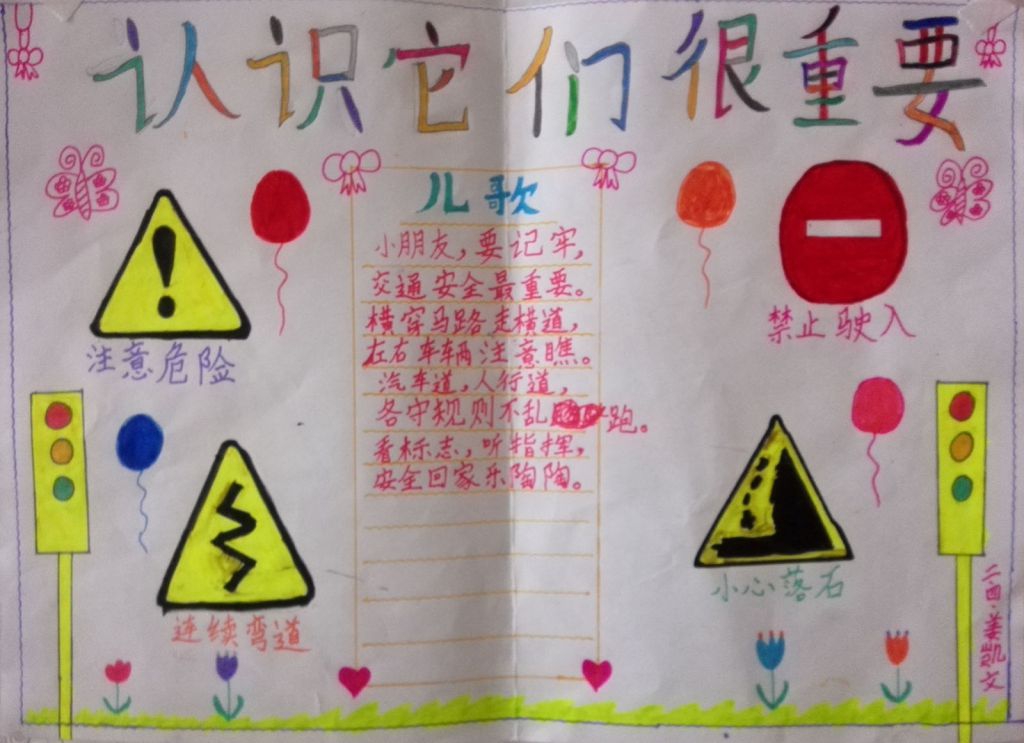 认识它们很重要
儿歌
小朋友,要记牢,
交通安全最重要。
横穿马路走横道,
左右车辆注意瞧。
汽车道,人行道,
各守规则不乱跑。
看标志,听指挥,
安全回家乐陶陶。
注意危险
禁止驶入
连续弯道
小心落石
二西·姜凯文